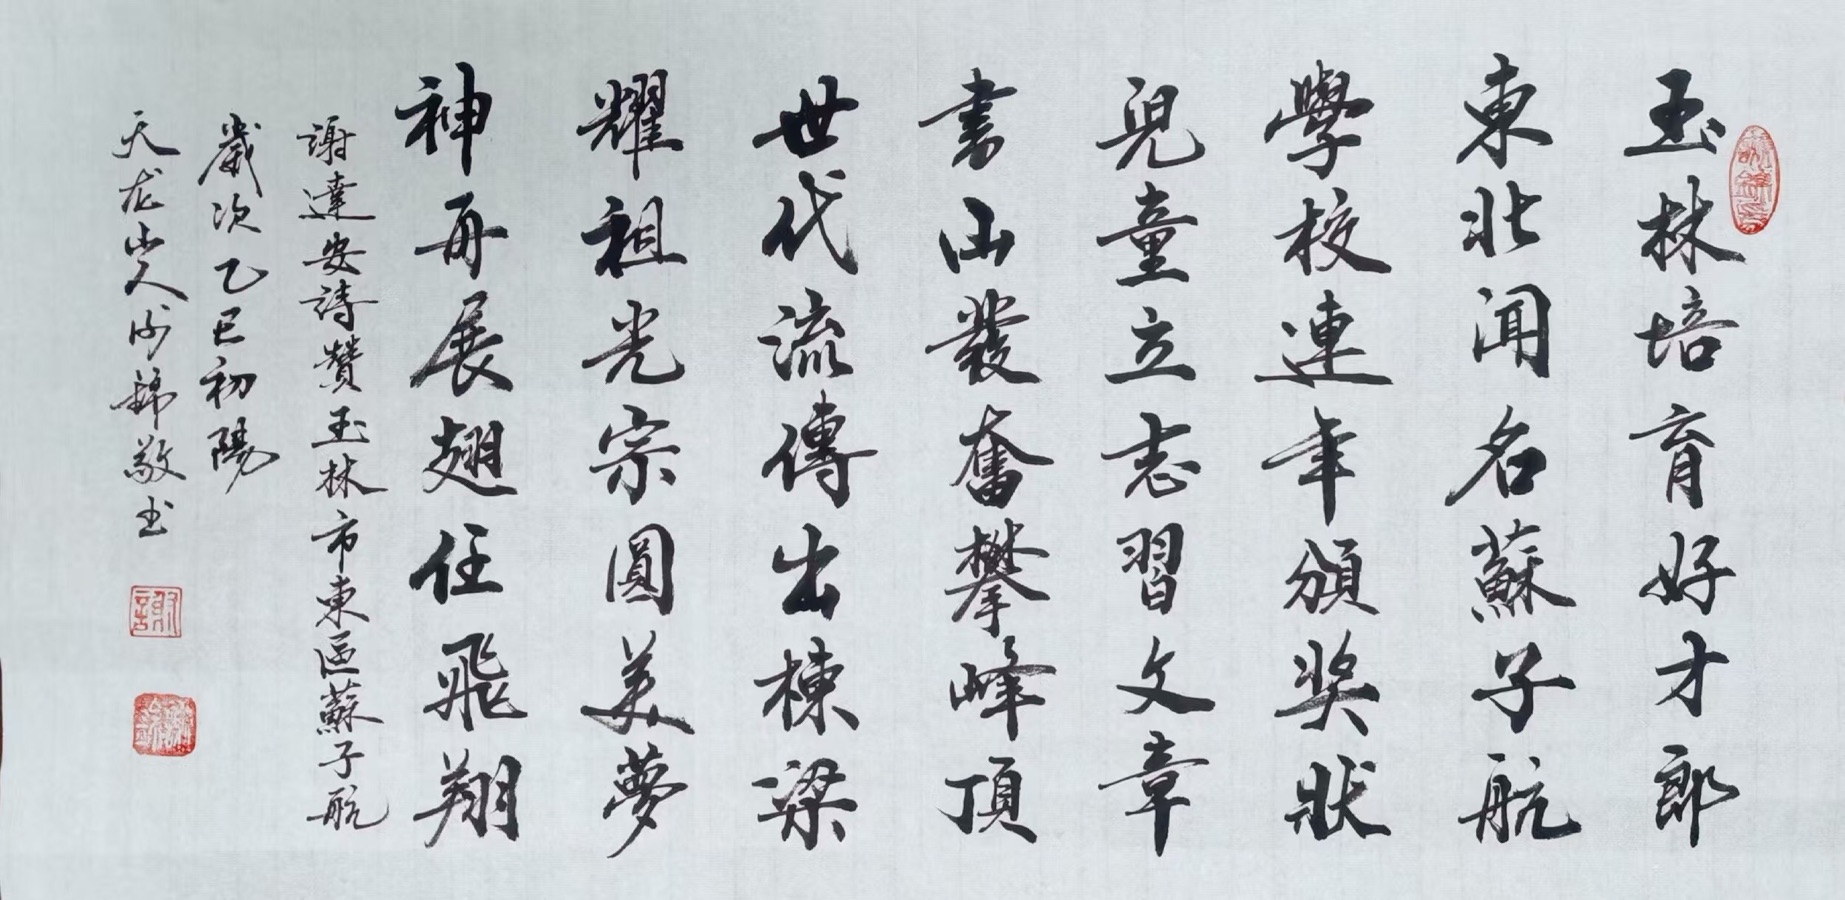 玉林培育好才郎
東北闻名蘇子航
學校連年頒奖狀
兒童立志習文章
書山發奮攀峰頂
世代流傳出棟梁
耀祖光宗圓美夢
神再展翅任飛翔
謝達安詩贊玉林市東區蘇子航
歲次乙巳初陽
天龙山人谢錦敬书
謝